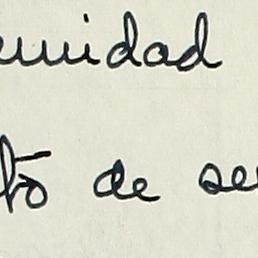 unidad
to de se